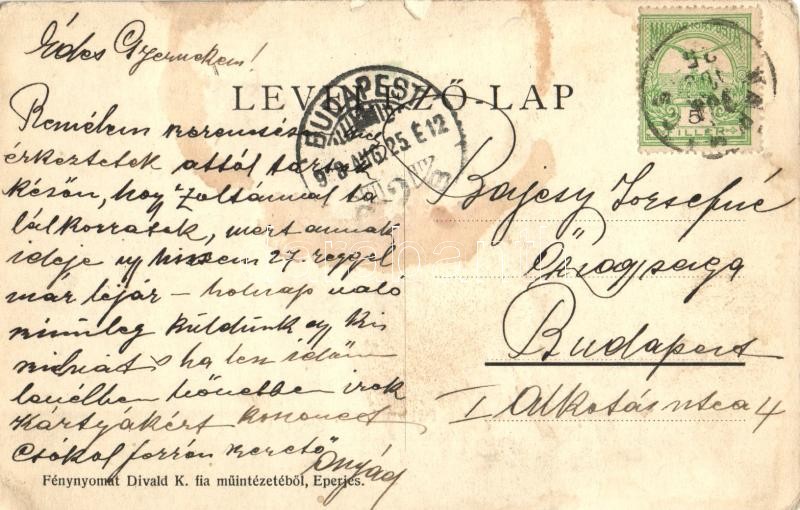 Édes Gyermekem!
LEVELEZŐ-LAP
Remélem szerencsésen meg
érkeztetek attól tartok
későn, hogy Zoltánnal ta
lálkozzatok, mert annak
ideje úgy hiszem 27. reggel
már lejár – holnap való
színűleg küldünk egy kis
ruhát s ha lesz időm
levélben bővebben irok
Kártyákért köszönet
Csókol forrón szerető
Anyád
Bajcsy Józsefné
Őnagysága
Budapest
I Alkotás utca 4
BUDAPEST
908 AUG 25 É12
MAGYAR KIR. POSTA
5
FILLÉR
Fénynyomat Divald K. fia műintézetéből, Eperjes.